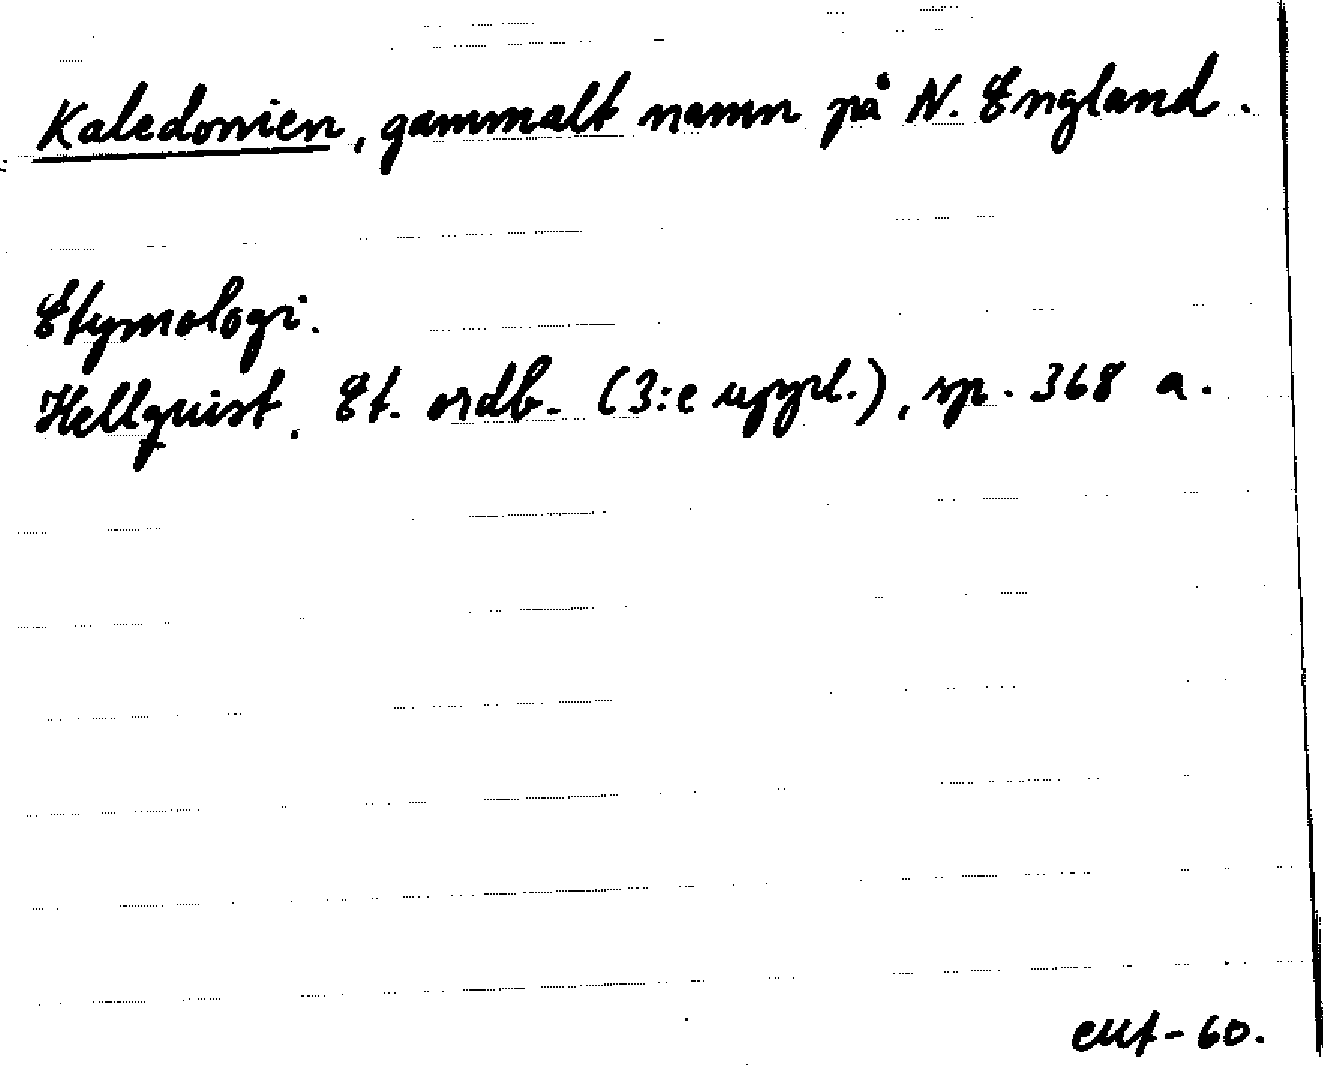 Kaledonien, gammalt namn på N. England.
Etymologi.
Hellquist. Et. ordb. (3:e uppl.), sp. 368 a.
-60.